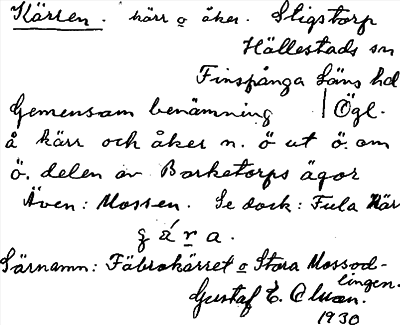 Kärren. kärr o åker. Stigstorp
Hällestads sn
Finspånga läns hd
Gemensam benämning | Ögl.
å kärr och åker n. ö ut ö. om
ö. delen av Borketorps ägor
Även: Mossen. Se dock: Fula Kär
Särnamn: Fäbrokärret o Stora Mossod-
lingen.
Gustaf E.
1930